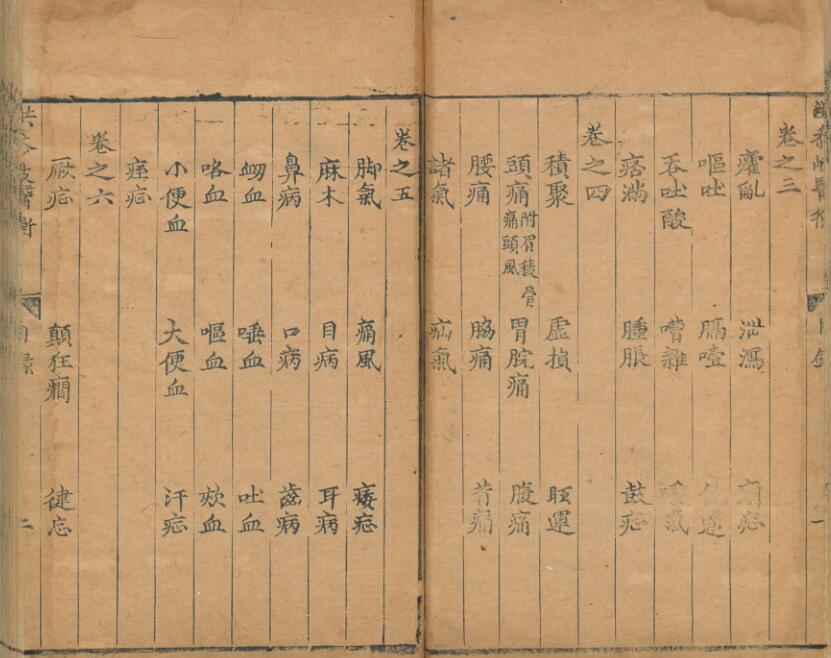 卷之三
癨亂 泄瀉 症
嘔吐 膈噎
吞吐酸 嘈雜 氣
痞滿 腫脹 鼓症
卷之四
積聚 虛損 眩運
頭痛 附眉稜骨痛頭風 胃脘痛 腹痛
腰痛 脇痛 背痛
諸氣 疝氣
卷之五
脚氣 痛風 痿症
麻木 目病 耳病
鼻病 口病 齒病
衄血 唾血 吐血
咯血 嘔血 欬血
小便血 大便血 汗症
痓症
卷之六
厥症 顛狂癇 健忘
醫衡 目錄 二